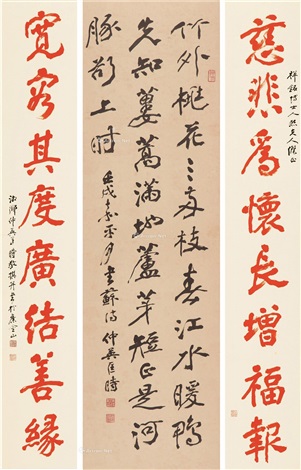 慈悲爲懷長增福報
竹外桃花三兩枝春江水暖鴨
先知蔞蒿滿地蘆芽短正是河
豚欲上時
寬容其度廣結善緣